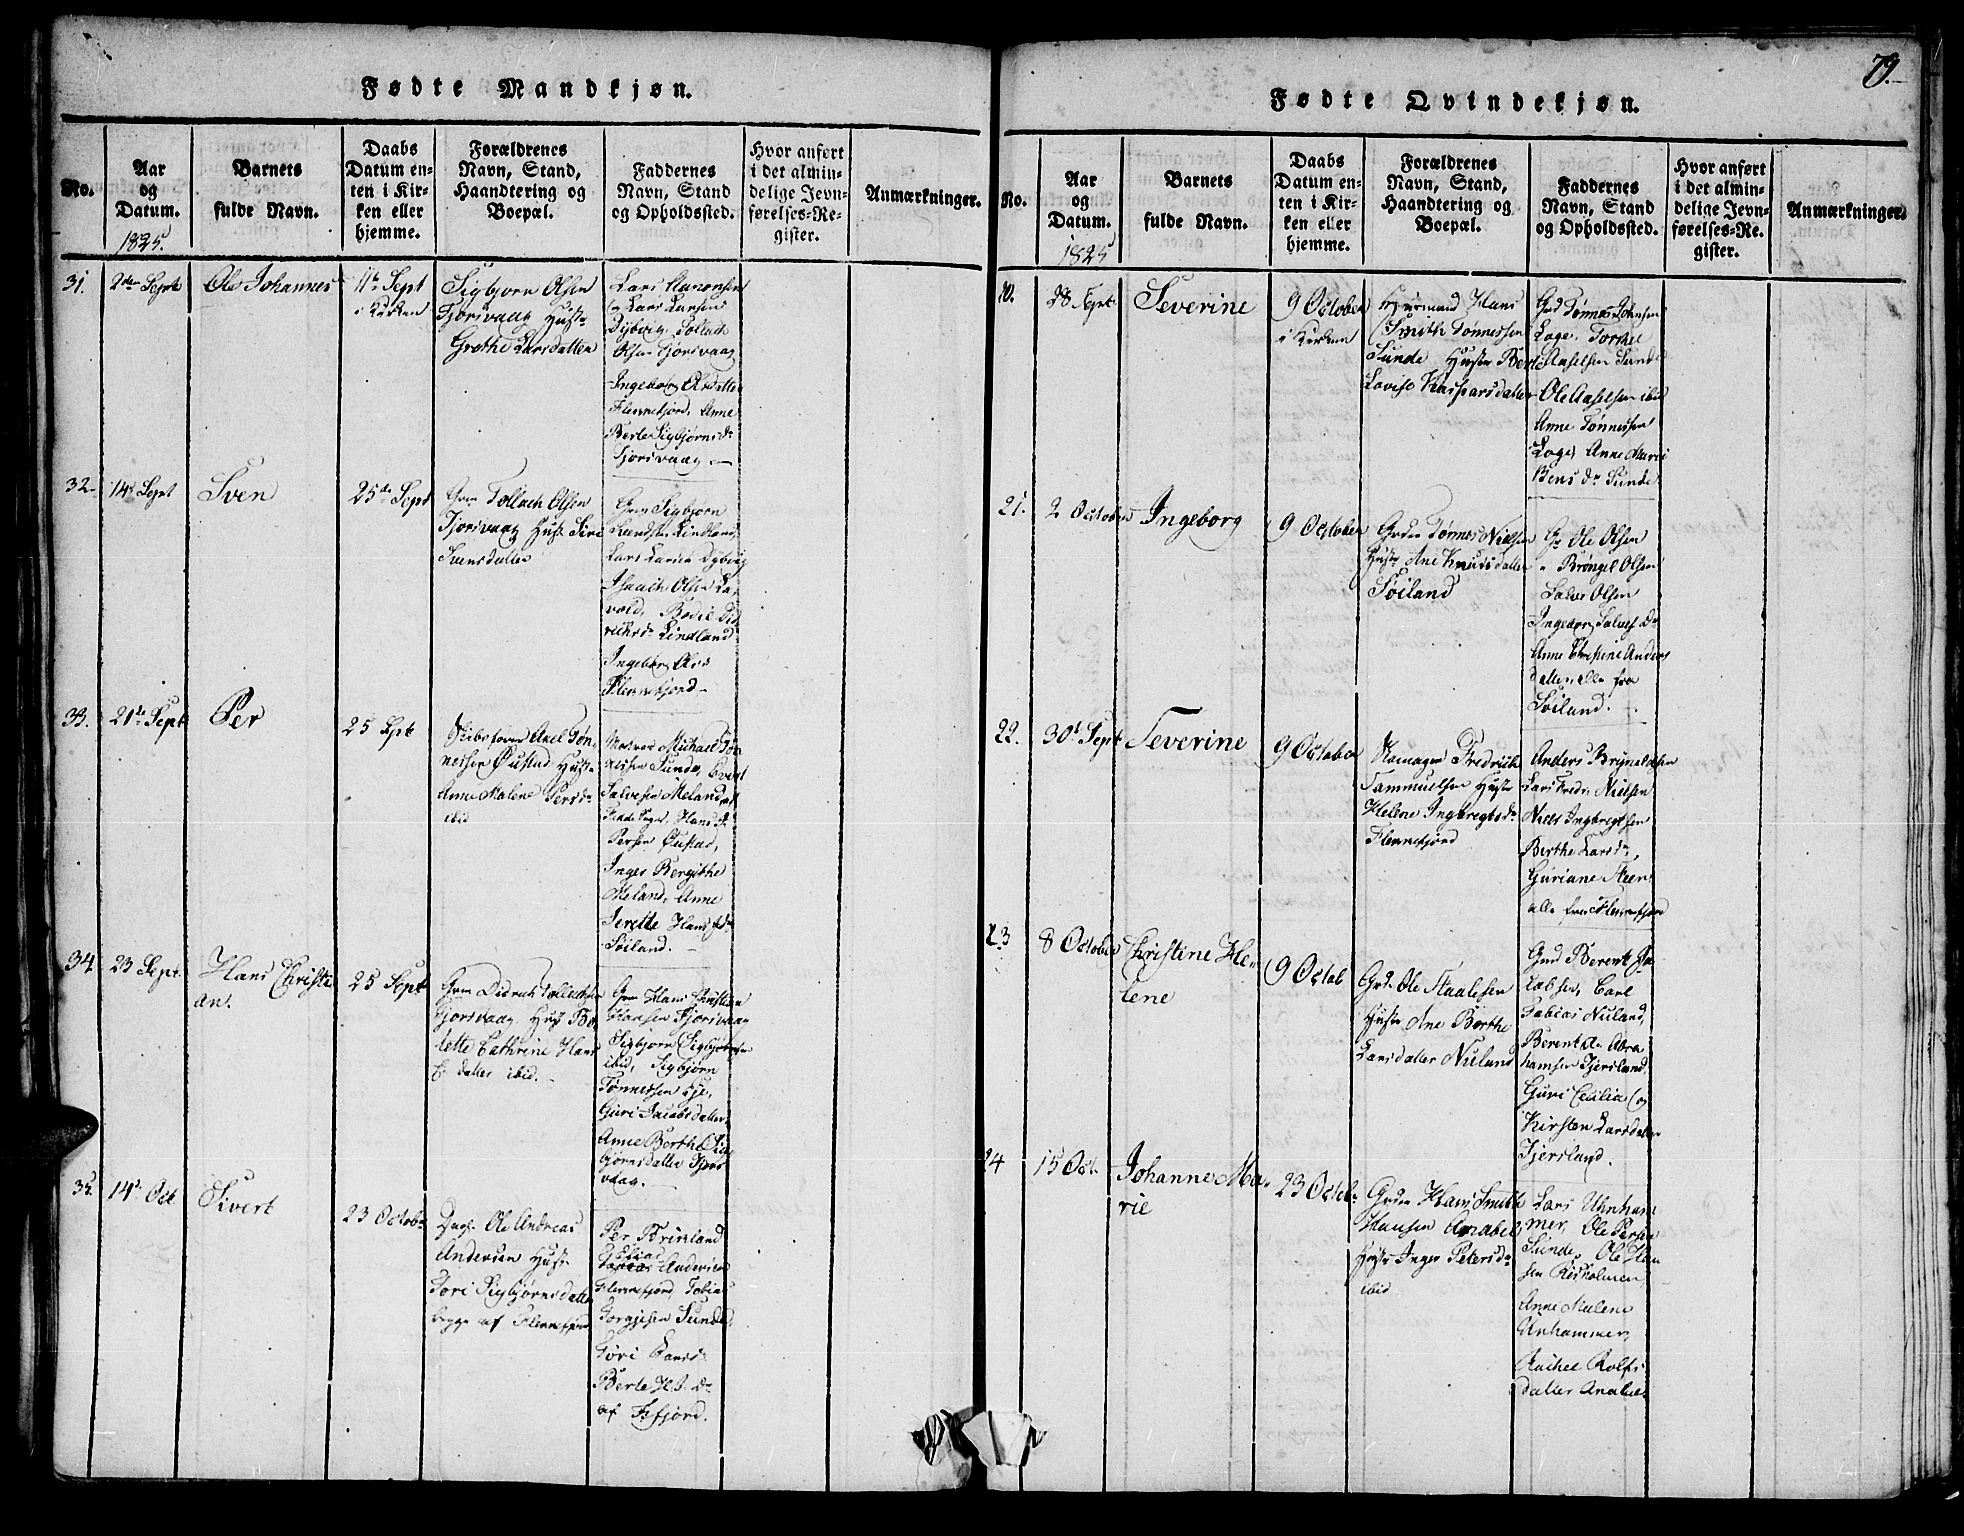 Fødte Mandkjøn.
No.
Aar
og
Datum.
1825.
Barnets
fulde Navn.
Daabs
Datum en-
ten i Kir-
ken eller
hjemme.
Forældrenes
Navn, Stand,
Haandtering og
Boepæl.
Faddernes
Navn, Stand
og Opholdssted.
Hvor anført
i det almin-
delige Jevn-
førelses-Re-
gister.
Anmærkninger.
31.
2den Sept
Ole Johannes
11te Sept
i Kirken
Sigbjørn Olsen
Fjorsvaag Hustr
Grethe Larsdatter
Lars
og Lars Larsen
Dybvig, Tollach
Olsen Fjorsvaag
Ingeborg Olsdatter
Flennefjord, Anne
Berte Sigbjørnsdr
Fjorsvaag
32.
14de Sept
Sven
25de Sept
Grm Tollach Olsen
Fjorsvaag Hust Siri
Svensdatter
Grm Sigbjørn
Lindland,
Lars Larsen Dybvig
Isaach Olsen
Bodil
Lindland
Ingeborg Olsd
Flennefjord
33.
21de Sept
Per
25 Sept
Skibsfører Axel Tøn-
nessen Øustad Hustr
Anne Malene Persdr
ibid
Michael Tøn-
nessen Sunde,
Salvesen Meland
Hans
Persen Øustad,
Inger Bergithe
Meland, Anne
Jerette Hansdr
Søiland.
34
23 Sept.
Hans Christi-
an.
25 Sept
Grm Didrich Tollachsen
Fjorsvaag Hust Bo-
lette Cathrine Hans
datter ibid.
Grm Hans Christian
Hansen Fjorsvaag
Sigbjørn Sigbjørnsen
ibid, Sigbjørn
Tønnessen
Guri Jacobsdatter
Anne Berthe Sig-
bjørnsdatter Fjors-
vaag.
35.
14de Oct
Sivert
23 Octobr
Ole Andreas
Andersen Hustr
Tori Sigbjørnsdatter
begge af Flennefjord
Per Brinland
Elias
Andersen
Flennefjord Tobias
Torgjesen Sunde
Tøri Larsdr
Berte H.J. Dr
af Fefjord.
79.
Fødte Qvindekjøn.
No.
Aar
og
Datum.
1825
Barnets
fulde Navn.
Daabs
Datum en-
ten i Kir-
ken eller
hjemme.
Forældrenes
Navn, Stand,
Haandtering og
Boepæl.
Faddernes
Navn, Stand
og Opholdssted.
Hvor anført
i det almin-
delige Jevn-
førelses-Re-
gister.
Anmærkninger.
20.
28 Sept.
Severine
9 October
i Kirken
Hans
Smith Tønnessen
Sunde Hustr Berte
Lovise Kaspersdatter
Grd Tønnes Johnsen
Loge, Torkel
Aaselsen Sunde
Ole Aaselsen ibid
Anne Tønnessen
Loge, Anne Marie
Bens dr Sunde
21.
2 October
Ingeborg
9 October
Grdm Tønnes Nielsen
Hustr Ane Knudsdatter
Søiland
Gr Ole Olsen
" Brøngel Olsen
Salve Olsen
Ingeborg Salves Dr
Anne Anders
datter alle fra
Søiland.
22.
30te Sept
Severine
9 October
Fredrich
Sammuelsen Hustr
Helene Ingbregtsdr
Flennefjord
Anders Brynildsen
Lars Fredr. Nielsen
Niels Ingbregtsen
Berthe Larsdr,
Guriane Steen
alle fra Flennefjord
23
8 October
Christine He-
lene
9 Octob
Grd. Ole Staalesen
Hustr Ane Berthe
Larsdatter Nuland
Grd Berent Ja-
cobsen, Carl
Tobias Nuland,
Berent Abra-
hamsen Fjersland,
Guri Cecilia og
Kirsten Larsdatter
Fjersland.
24
15 Oct.
Johanne Ma-
rie
23 Octobr
Grdm Hans Smith
Hansen Anabel
Hustr Inger Petersdr
ibid
Lars Unham-
mer, Ole Persen
Sunde, Ole Han-
sen Risholmen
Anne Malene
Unhammer,
Rachel Rolfs
datter Anabel